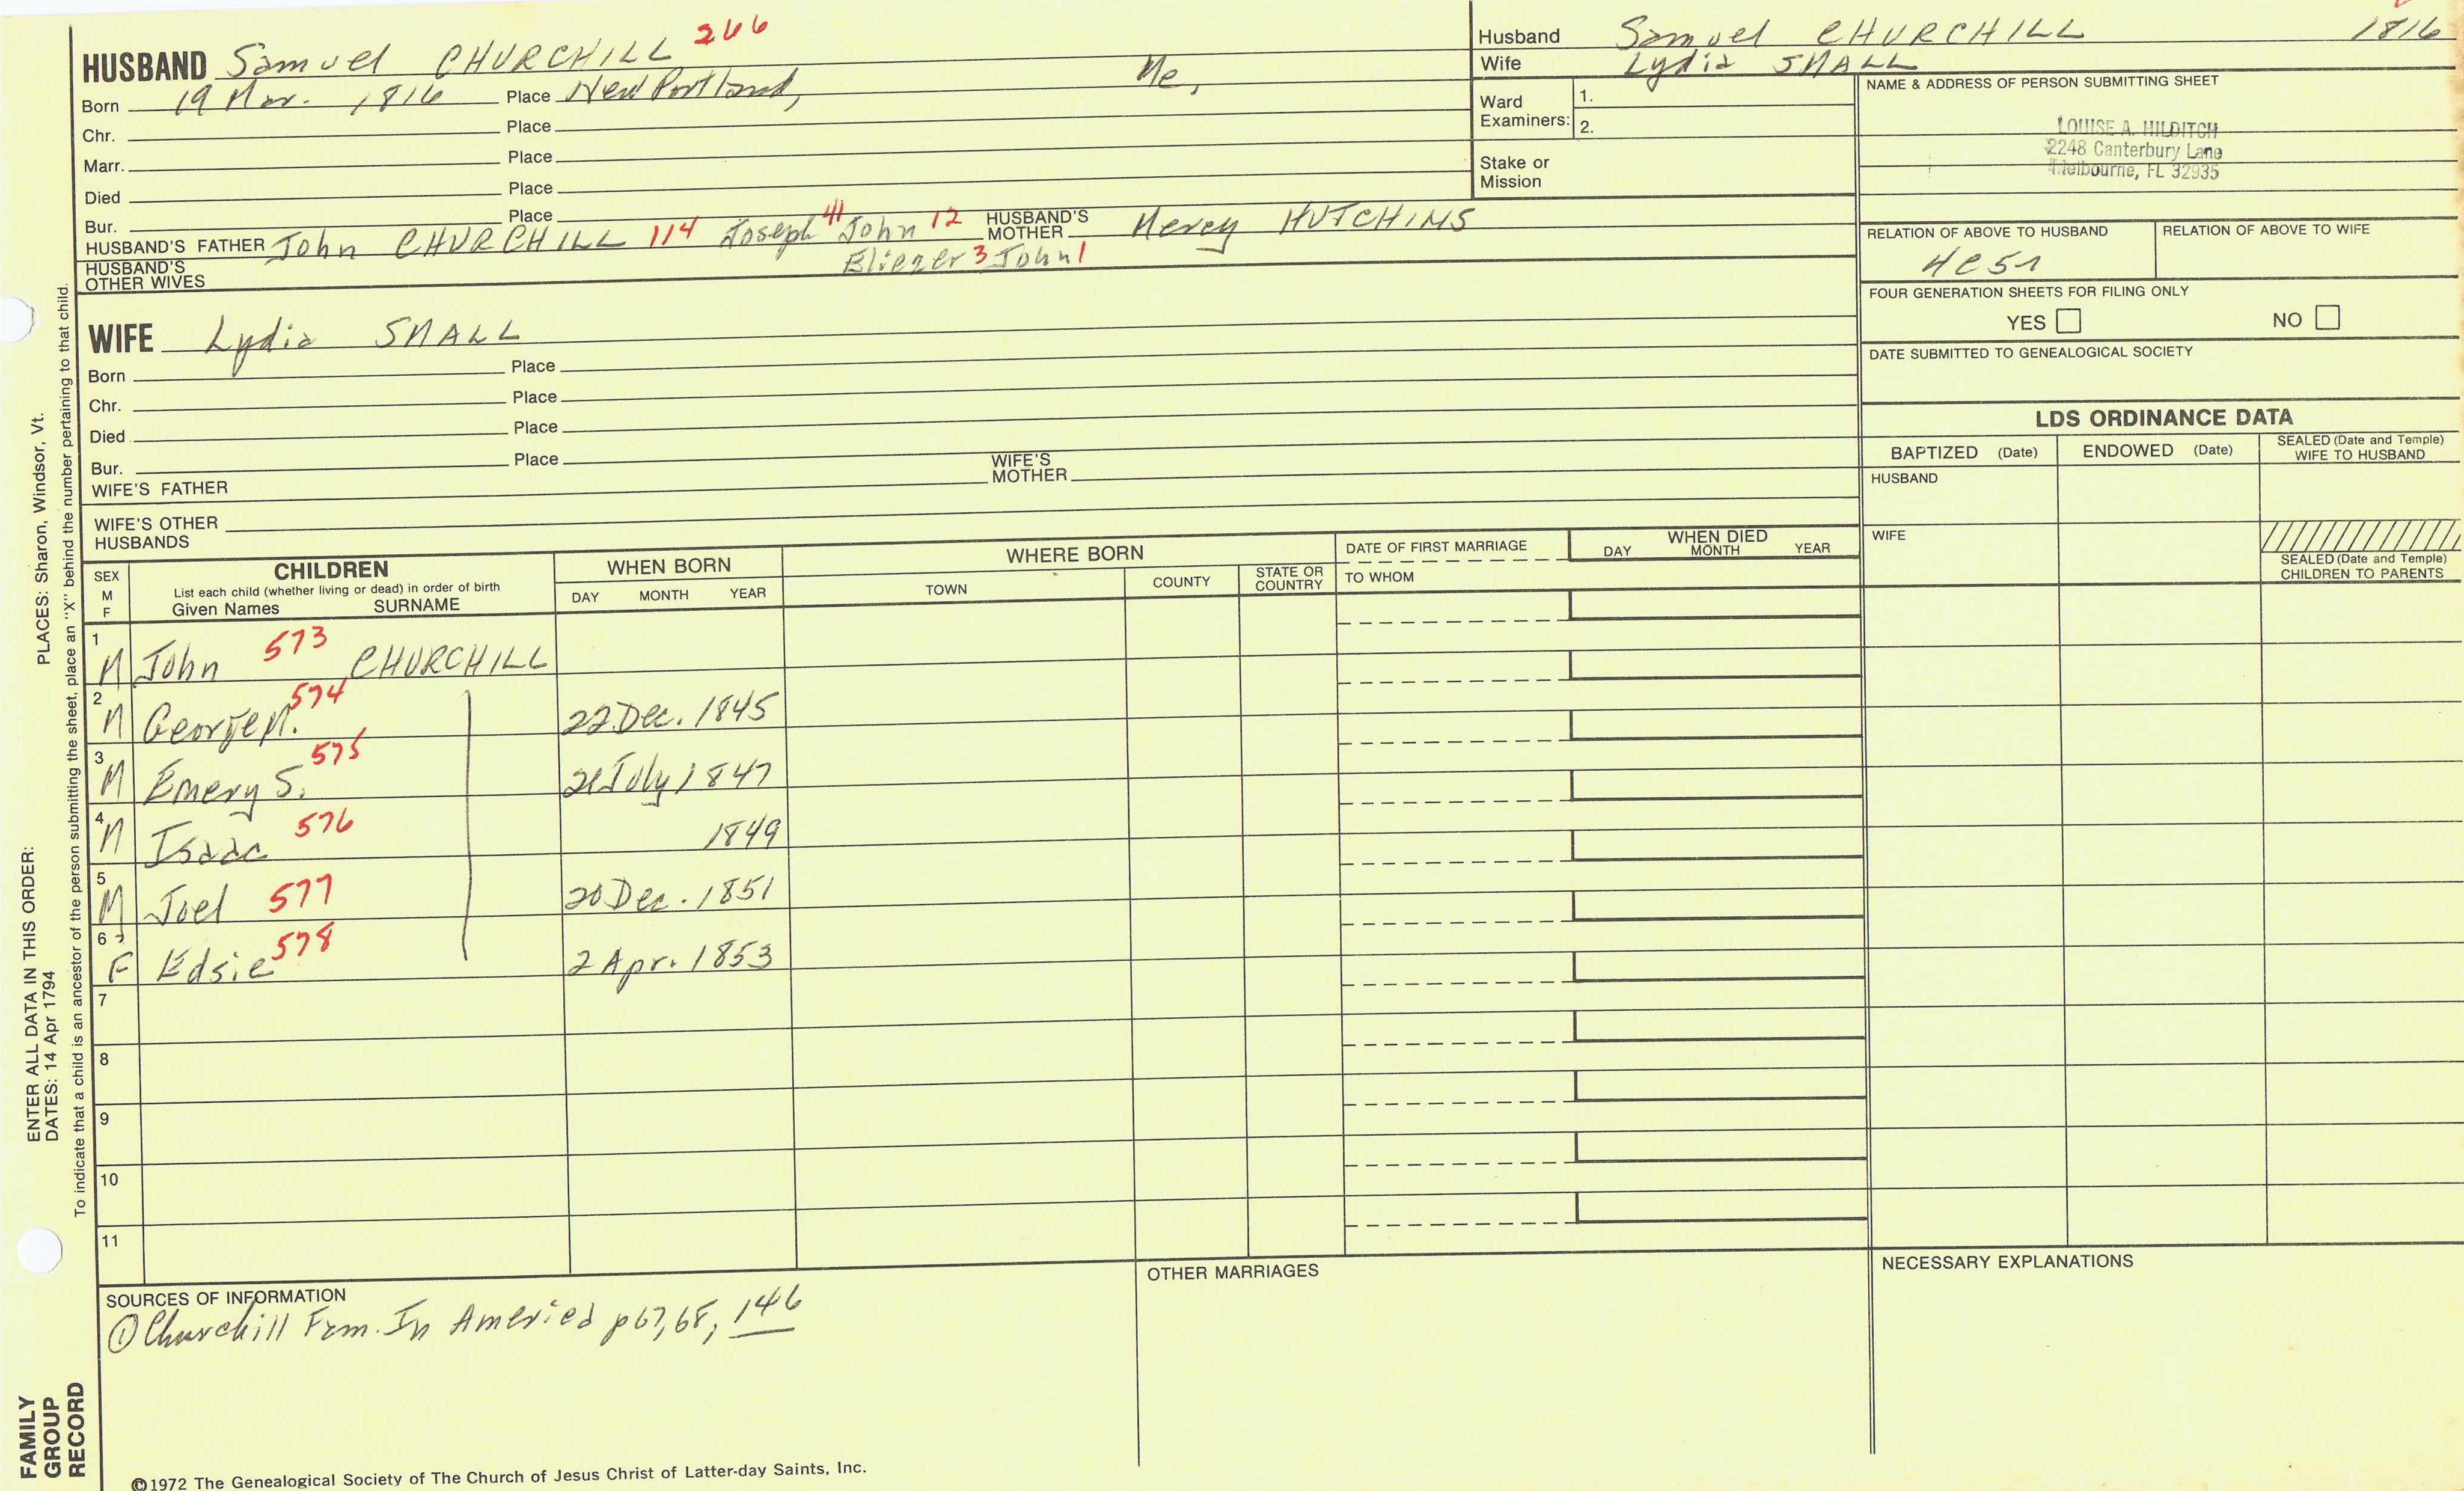 HUSBAND Samuel CHURCHILL 266
Born 19 Mar. 1816 Place New Portland, Me,
Chr. Place
Marr. Place
Died Place
Bur. Place
HUSBAND'S FATHER John CHURCHILL 114 Joseph 41 John 12 HUSBAND'S MOTHER Mercy HUTCHINS
Eliezer 3 John 1
HUSBAND'S OTHER WIVES
WIFE Lydia SMALL
Born Place
Chr. Place
Died Place
Bur. Place
WIFE'S FATHER WIFE'S MOTHER
WIFE'S OTHER HUSBANDS
Husband Samuel CHURCHILL 1816
Wife Lydia SMALL
Ward Examiners: 1.
2.
Stake or Mission
NAME & ADDRESS OF PERSON SUBMITTING SHEET
LOUISE A. HILDITCH
2248 Canterbury Lane
Melbourne, FL 32935
RELATION OF ABOVE TO HUSBAND RELATION OF ABOVE TO WIFE
FOUR GENERATION SHEETS FOR FILING ONLY
YES NO
DATE SUBMITTED TO GENEALOGICAL SOCIETY
LDS ORDINANCE DATA
BAPTIZED (Date) ENDOWED (Date) SEALED (Date and Temple) WIFE TO HUSBAND
HUSBAND
WIFE
SEALED (Date and Temple) CHILDREN TO PARENTS
SEX M F
CHILDREN
List each child (whether living or dead) in order of birth
Given Names SURNAME
WHEN BORN
DAY MONTH YEAR
WHERE BORN
TOWN COUNTY STATE OR COUNTRY
DATE OF FIRST MARRIAGE
TO WHOM
WHEN DIED
DAY MONTH YEAR
1 M John 573 CHURCHILL
2 M George M. 574 22 Dec. 1845
3 M Emery S. 575 21 July 1847
4 M Isaac 576 1849
5 M Joel 577 20 Dec. 1851
6 F Edsie 578 2 Apr. 1853
7
8
9
10
11
SOURCES OF INFORMATION
① Churchill Fam. In America p67,68, 146
OTHER MARRIAGES
NECESSARY EXPLANATIONS
©1972 The Genealogical Society of The Church of Jesus Christ of Latter-day Saints, Inc.
FAMILY GROUP RECORD
ENTER ALL DATA IN THIS ORDER:
DATES: 14 Apr 1794
PLACES: Sharon, Windsor, Vt.
To indicate that a child is an ancestor of the person submitting the sheet, place an "X" behind the number pertaining to that child.